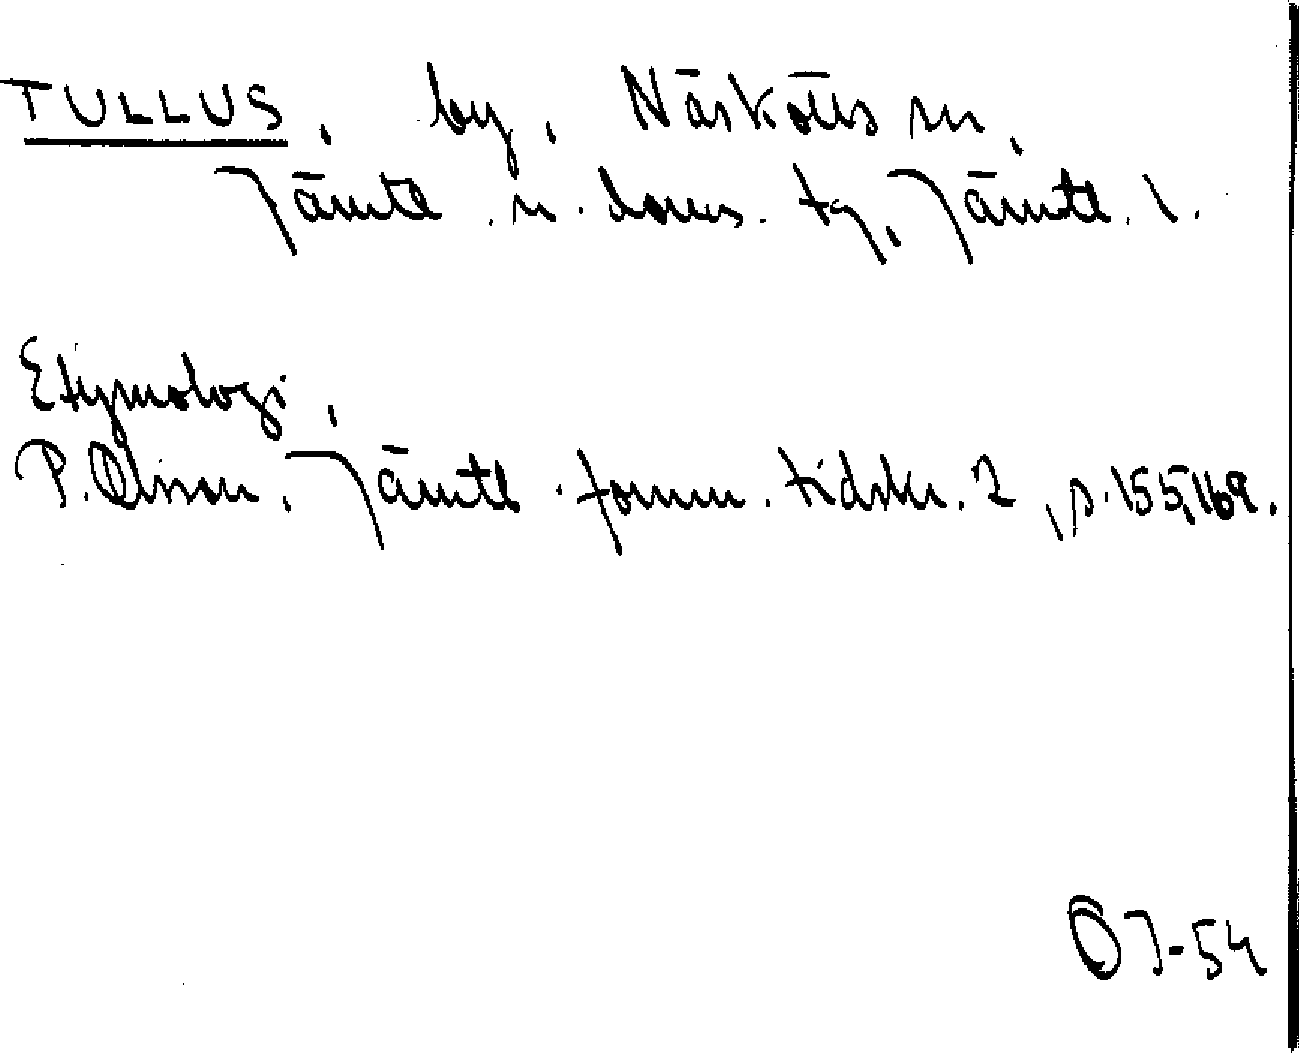 TULLUS, by, Näskotts sn,
Jämtl. n. doms. tg, Jämtl. l.
Etymologi,
P. Olsson, Jämtl. fornm. tidskr. 2, s. 155, 169.
ÖJ-54